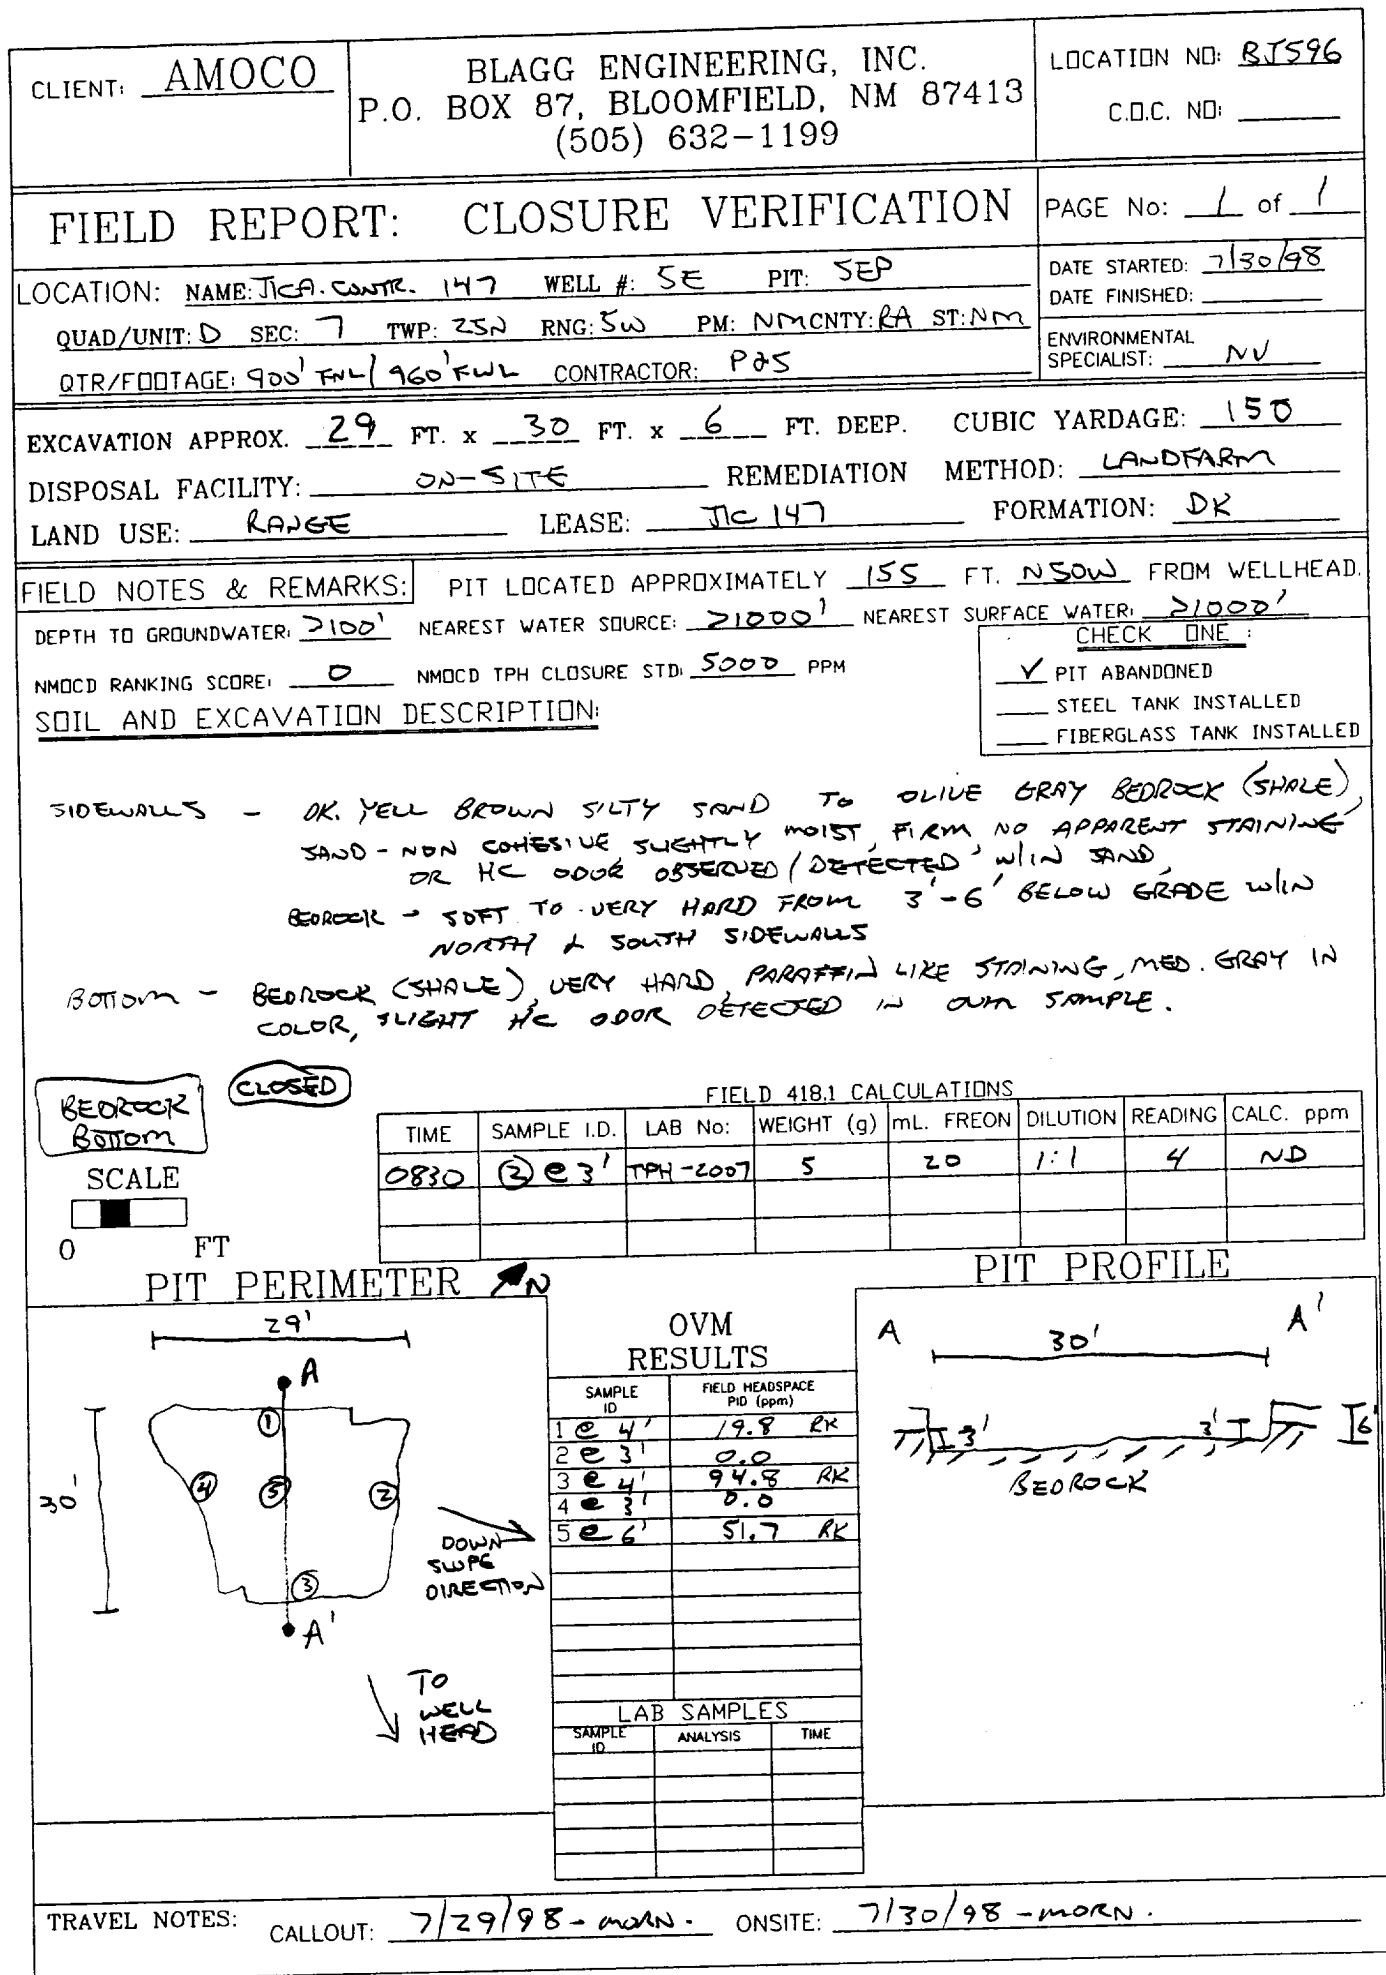 CLIENT: AMOCO
BLAGG ENGINEERING, INC.
P.O. BOX 87, BLOOMFIELD, NM 87413
(505) 632-1199
LOCATION NO: BJ596
C.O.C. NO:
FIELD REPORT: CLOSURE VERIFICATION
PAGE No: 1 of 1
LOCATION: NAME: JICA. CONTR. 147 WELL #: 5E PIT: SEP
QUAD/UNIT: D SEC: 7 TWP: 25N RNG: 5W PM: NM CNTY: RA ST: NM
QTR/FOOTAGE: 900' FNL/960' FWL CONTRACTOR: P&S
DATE STARTED: 7/30/98
DATE FINISHED:
ENVIRONMENTAL
SPECIALIST: NV
EXCAVATION APPROX. 29 FT. x 30 FT. x 6 FT. DEEP. CUBIC YARDAGE: 150
DISPOSAL FACILITY: ON-SITE REMEDIATION METHOD: LANDFARM
LAND USE: RANGE LEASE: JIC 147 FORMATION: DK
FIELD NOTES & REMARKS: PIT LOCATED APPROXIMATELY 155 FT. N50W FROM WELLHEAD.
DEPTH TO GROUNDWATER: >100' NEAREST WATER SOURCE: >1000' NEAREST SURFACE WATER: >1000'
NMOCD RANKING SCORE: 0 NMOCD TPH CLOSURE STD: 5000 PPM
CHECK ONE :
✓ PIT ABANDONED
STEEL TANK INSTALLED
FIBERGLASS TANK INSTALLED
SOIL AND EXCAVATION DESCRIPTION:
SIDEWALLS - DK. YELL BROWN SILTY SAND TO OLIVE GRAY BEDROCK (SHALE),
SAND - NON COHESIVE SLIGHTLY MOIST, FIRM, NO APPARENT STAINING
OR HC ODOR OBSERVED/DETECTED W/IN SAND,
BEDROCK - SOFT TO VERY HARD FROM 3'-6' BELOW GRADE W/IN
NORTH & SOUTH SIDEWALLS
BOTTOM - BEDROCK (SHALE), VERY HARD, PARAFFIN LIKE STAINING, MED. GRAY IN
COLOR, SLIGHT HC ODOR DETECTED IN OVM SAMPLE.
BEDROCK
BOTTOM
CLOSED
SCALE
0 FT
FIELD 418.1 CALCULATIONS
TIME SAMPLE I.D. LAB No: WEIGHT (g) mL. FREON DILUTION READING CALC. ppm
0830 ② @ 3' TPH-2007 5 20 1:1 4 ND
PIT PERIMETER N
29'
A
①
④ ⑤ ②
30'
③
A'
DOWN
SLOPE
DIRECTION
TO
WELL
HEAD
OVM
RESULTS
SAMPLE ID FIELD HEADSPACE PID (ppm)
1 @ 4' 19.8 RK
2 @ 3' 0.0
3 @ 4' 94.8 RK
4 @ 3' 0.0
5 @ 6' 51.7 RK
LAB SAMPLES
SAMPLE ID ANALYSIS TIME
PIT PROFILE
A 30' A'
3' 3' 6'
BEDROCK
TRAVEL NOTES: CALLOUT: 7/29/98 - MORN. ONSITE: 7/30/98 - MORN.